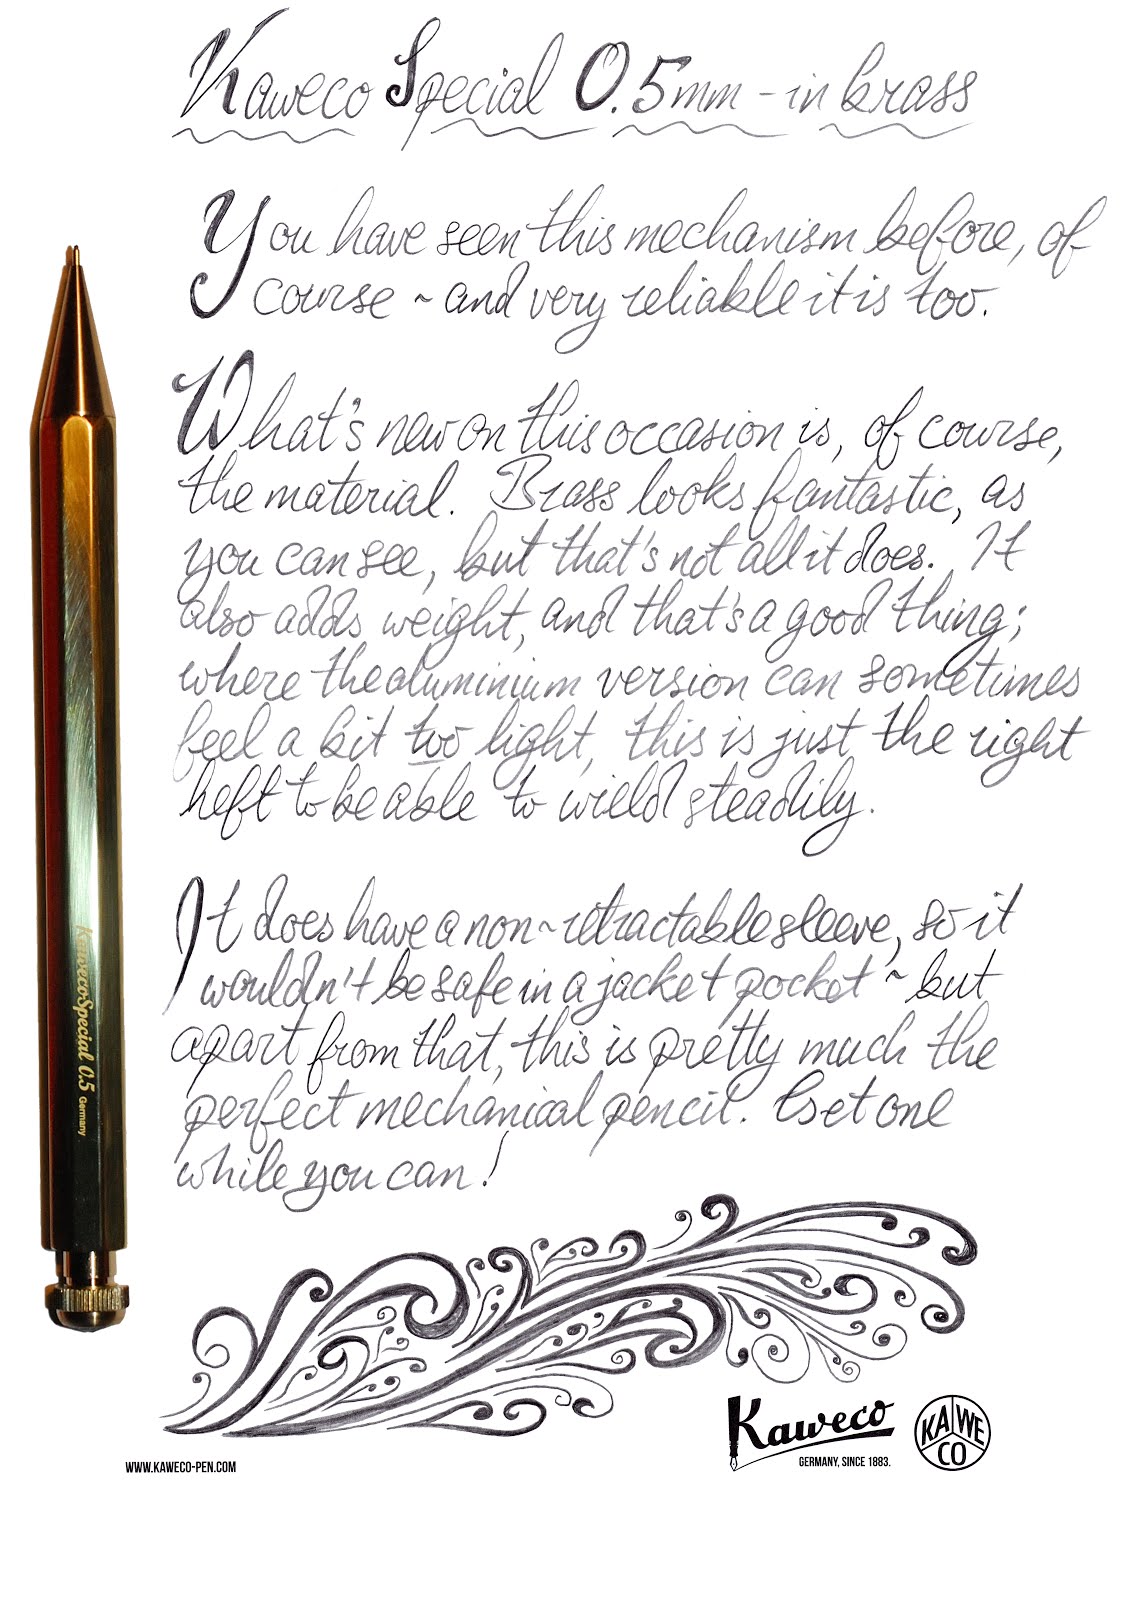 Kaweco Special 0.5mm - in brass
You have seen this mechanism before, of
course ~ and very reliable it is too.
What's new on this occasion is, of course,
the material. Brass looks fantastic, as
you can see, but that's not all it does. It
also adds weight, and that's a good thing;
where the aluminium version can sometimes
feel a bit too light, this is just the right
heft to be able to wield steadily.
It does have a non~retractable sleeve, so it
wouldn't be safe in a jacket pocket ~ but
apart from that, this is pretty much the
perfect mechanical pencil. Get one
while you can!
KawecoSpecial 0.5 Germany
Kaweco
GERMANY, SINCE 1883.
KA WE CO
WWW.KAWECO-PEN.COM